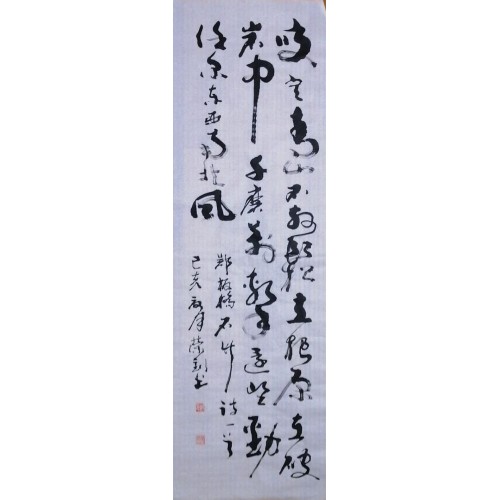 咬定青山不放鬆立根原在破
岩中千磨萬擊還堅勁
任尔东西南北風
鄭板橋石竹詩一首
己亥月书